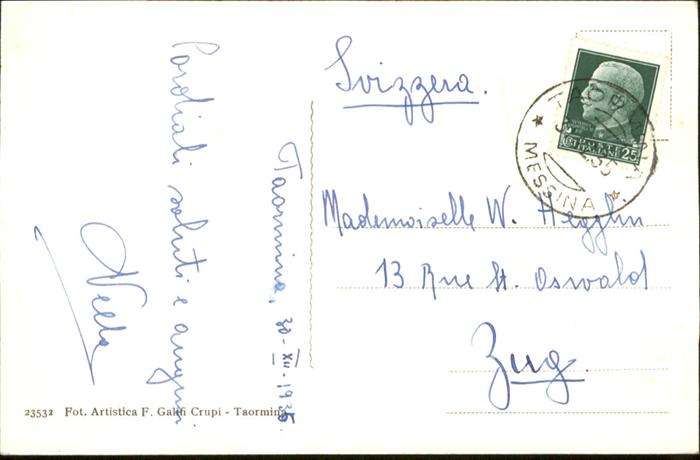 Svizzera.
Mademoiselle W. Hegglin
13 Rue St. Oswald
Zug.
Cordiali saluti e auguri
Nella
Taormina, 30-XII-1935
TAORMINA
MESSINA
POSTE
ITALIANE 25
23532 Fot. Artistica F. Galifi Crupi - Taormina